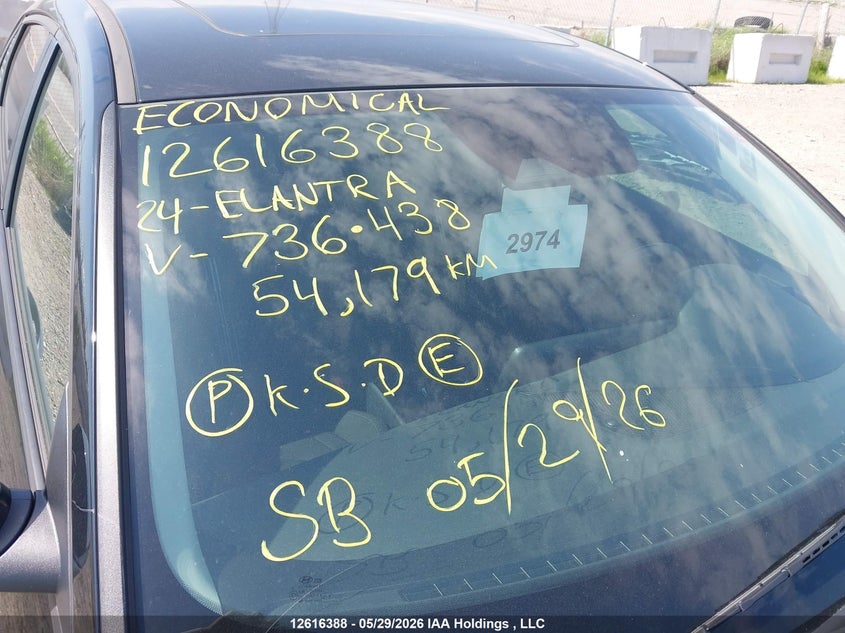 ECONOMICAL
12616388
24-ELANTRA
V-736.438
2974
54,179 KM
P K.S.D E
SB 05/29/26
12616388 - 05/29/2026 IAA Holdings , LLC